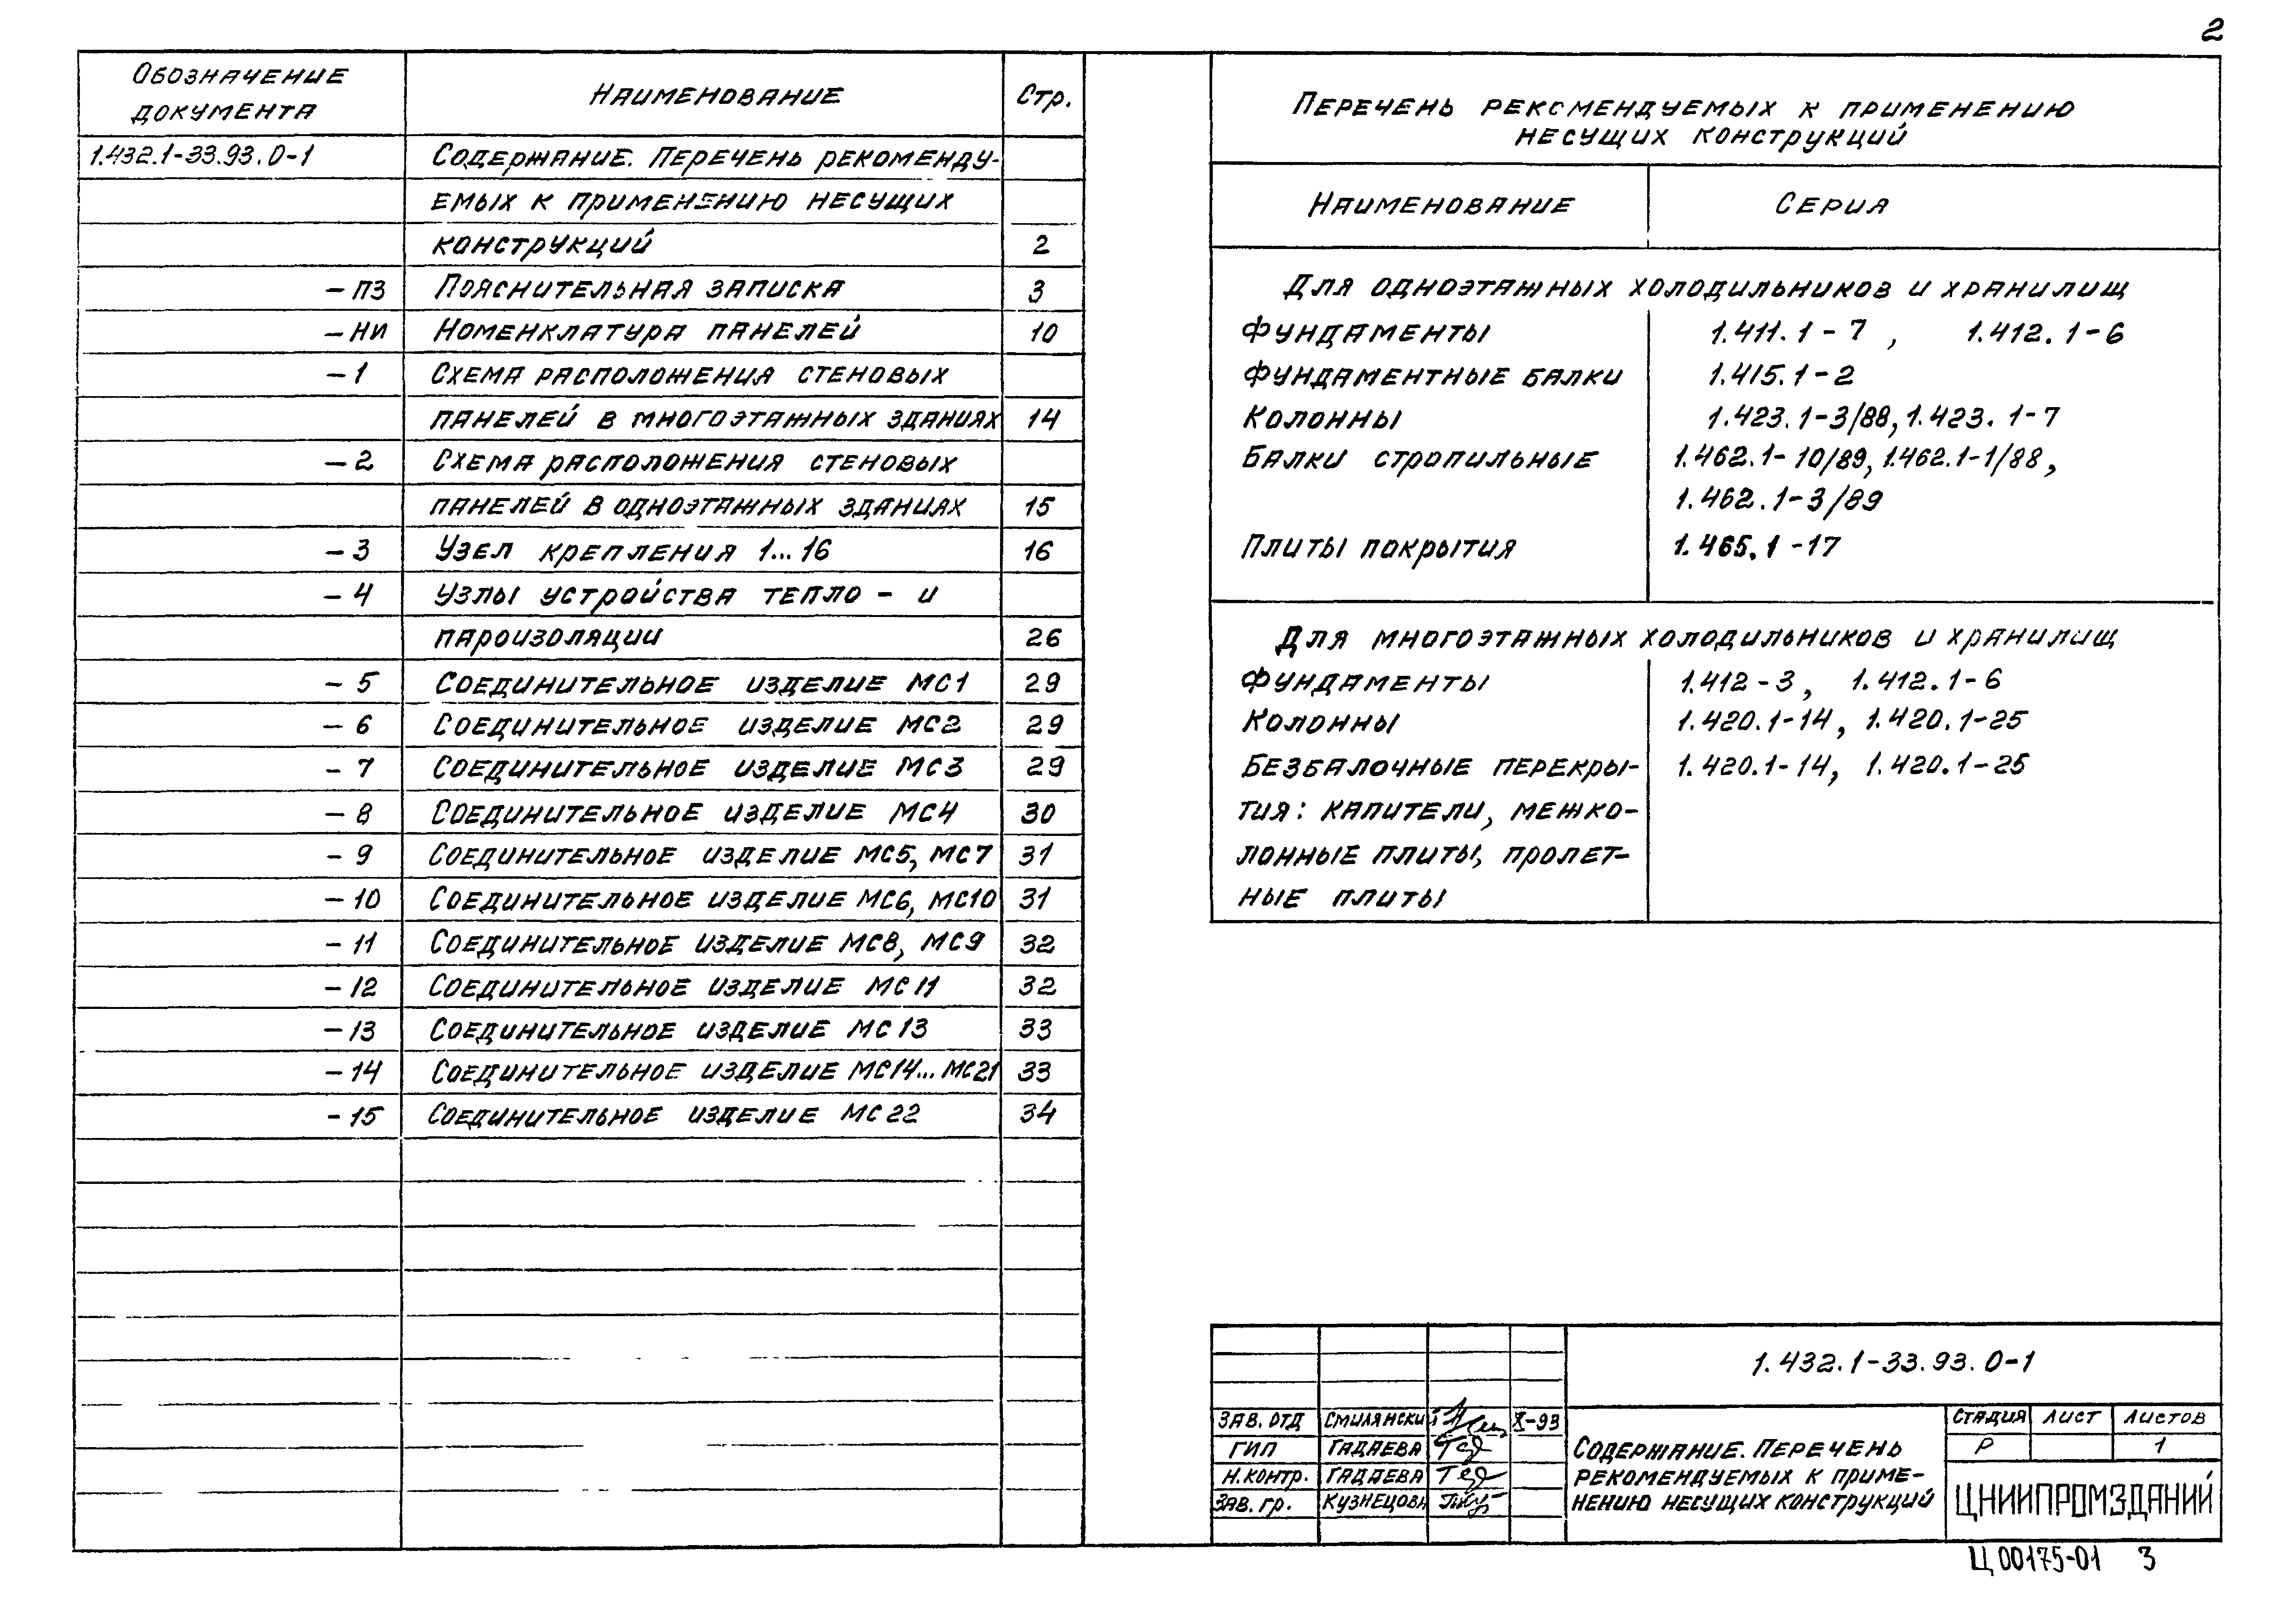 2
Обозначение документа Наименование Стр.
1.432.1-33.93.0-1 Содержание. Перечень рекоменду-
емых к применению несущих
конструкций 2
-ПЗ Пояснительная записка 3
-НИ Номенклатура панелей 10
-1 Схема расположения стеновых
панелей в многоэтажных зданиях 14
-2 Схема расположения стеновых
панелей в одноэтажных зданиях 15
-3 Узел крепления 1...16 16
-4 Узлы устройства тепло- и
пароизоляции 26
-5 Соединительное изделие МС1 29
-6 Соединительное изделие МС2 29
-7 Соединительное изделие МС3 29
-8 Соединительное изделие МС4 30
-9 Соединительное изделие МС5, МС7 31
-10 Соединительное изделие МС6, МС10 31
-11 Соединительное изделие МС8, МС9 32
-12 Соединительное изделие МС11 32
-13 Соединительное изделие МС13 33
-14 Соединительное изделие МС14...МС21 33
-15 Соединительное изделие МС22 34
Перечень рекомендуемых к применению
несущих конструкций
Наименование Серия
Для одноэтажных холодильников и хранилищ
Фундаменты 1.411.1-7, 1.412.1-6
Фундаментные балки 1.415.1-2
Колонны 1.423.1-3/88, 1.423.1-7
Балки стропильные 1.462.1-10/89, 1.462.1-1/88,
1.462.1-3/89
Плиты покрытия 1.465.1-17
Для многоэтажных холодильников и хранилищ
Фундаменты 1.412-3, 1.412.1-6
Колонны 1.420.1-14, 1.420.1-25
Безбалочные перекры- 1.420.1-14, 1.420.1-25
тия: капители, межко-
лонные плиты, пролет-
ные плиты
1.432.1-33.93.0-1
Зав. отд Смилянский X-93
ГИП Гадаева
Н.контр. Гадаева
Зав. гр. Кузнецова
Содержание. Перечень
рекомендуемых к приме-
нению несущих конструкций
Стадия Лист Листов
Р 1
ЦНИИПРОМЗДАНИЙ
Ц00175-01 3